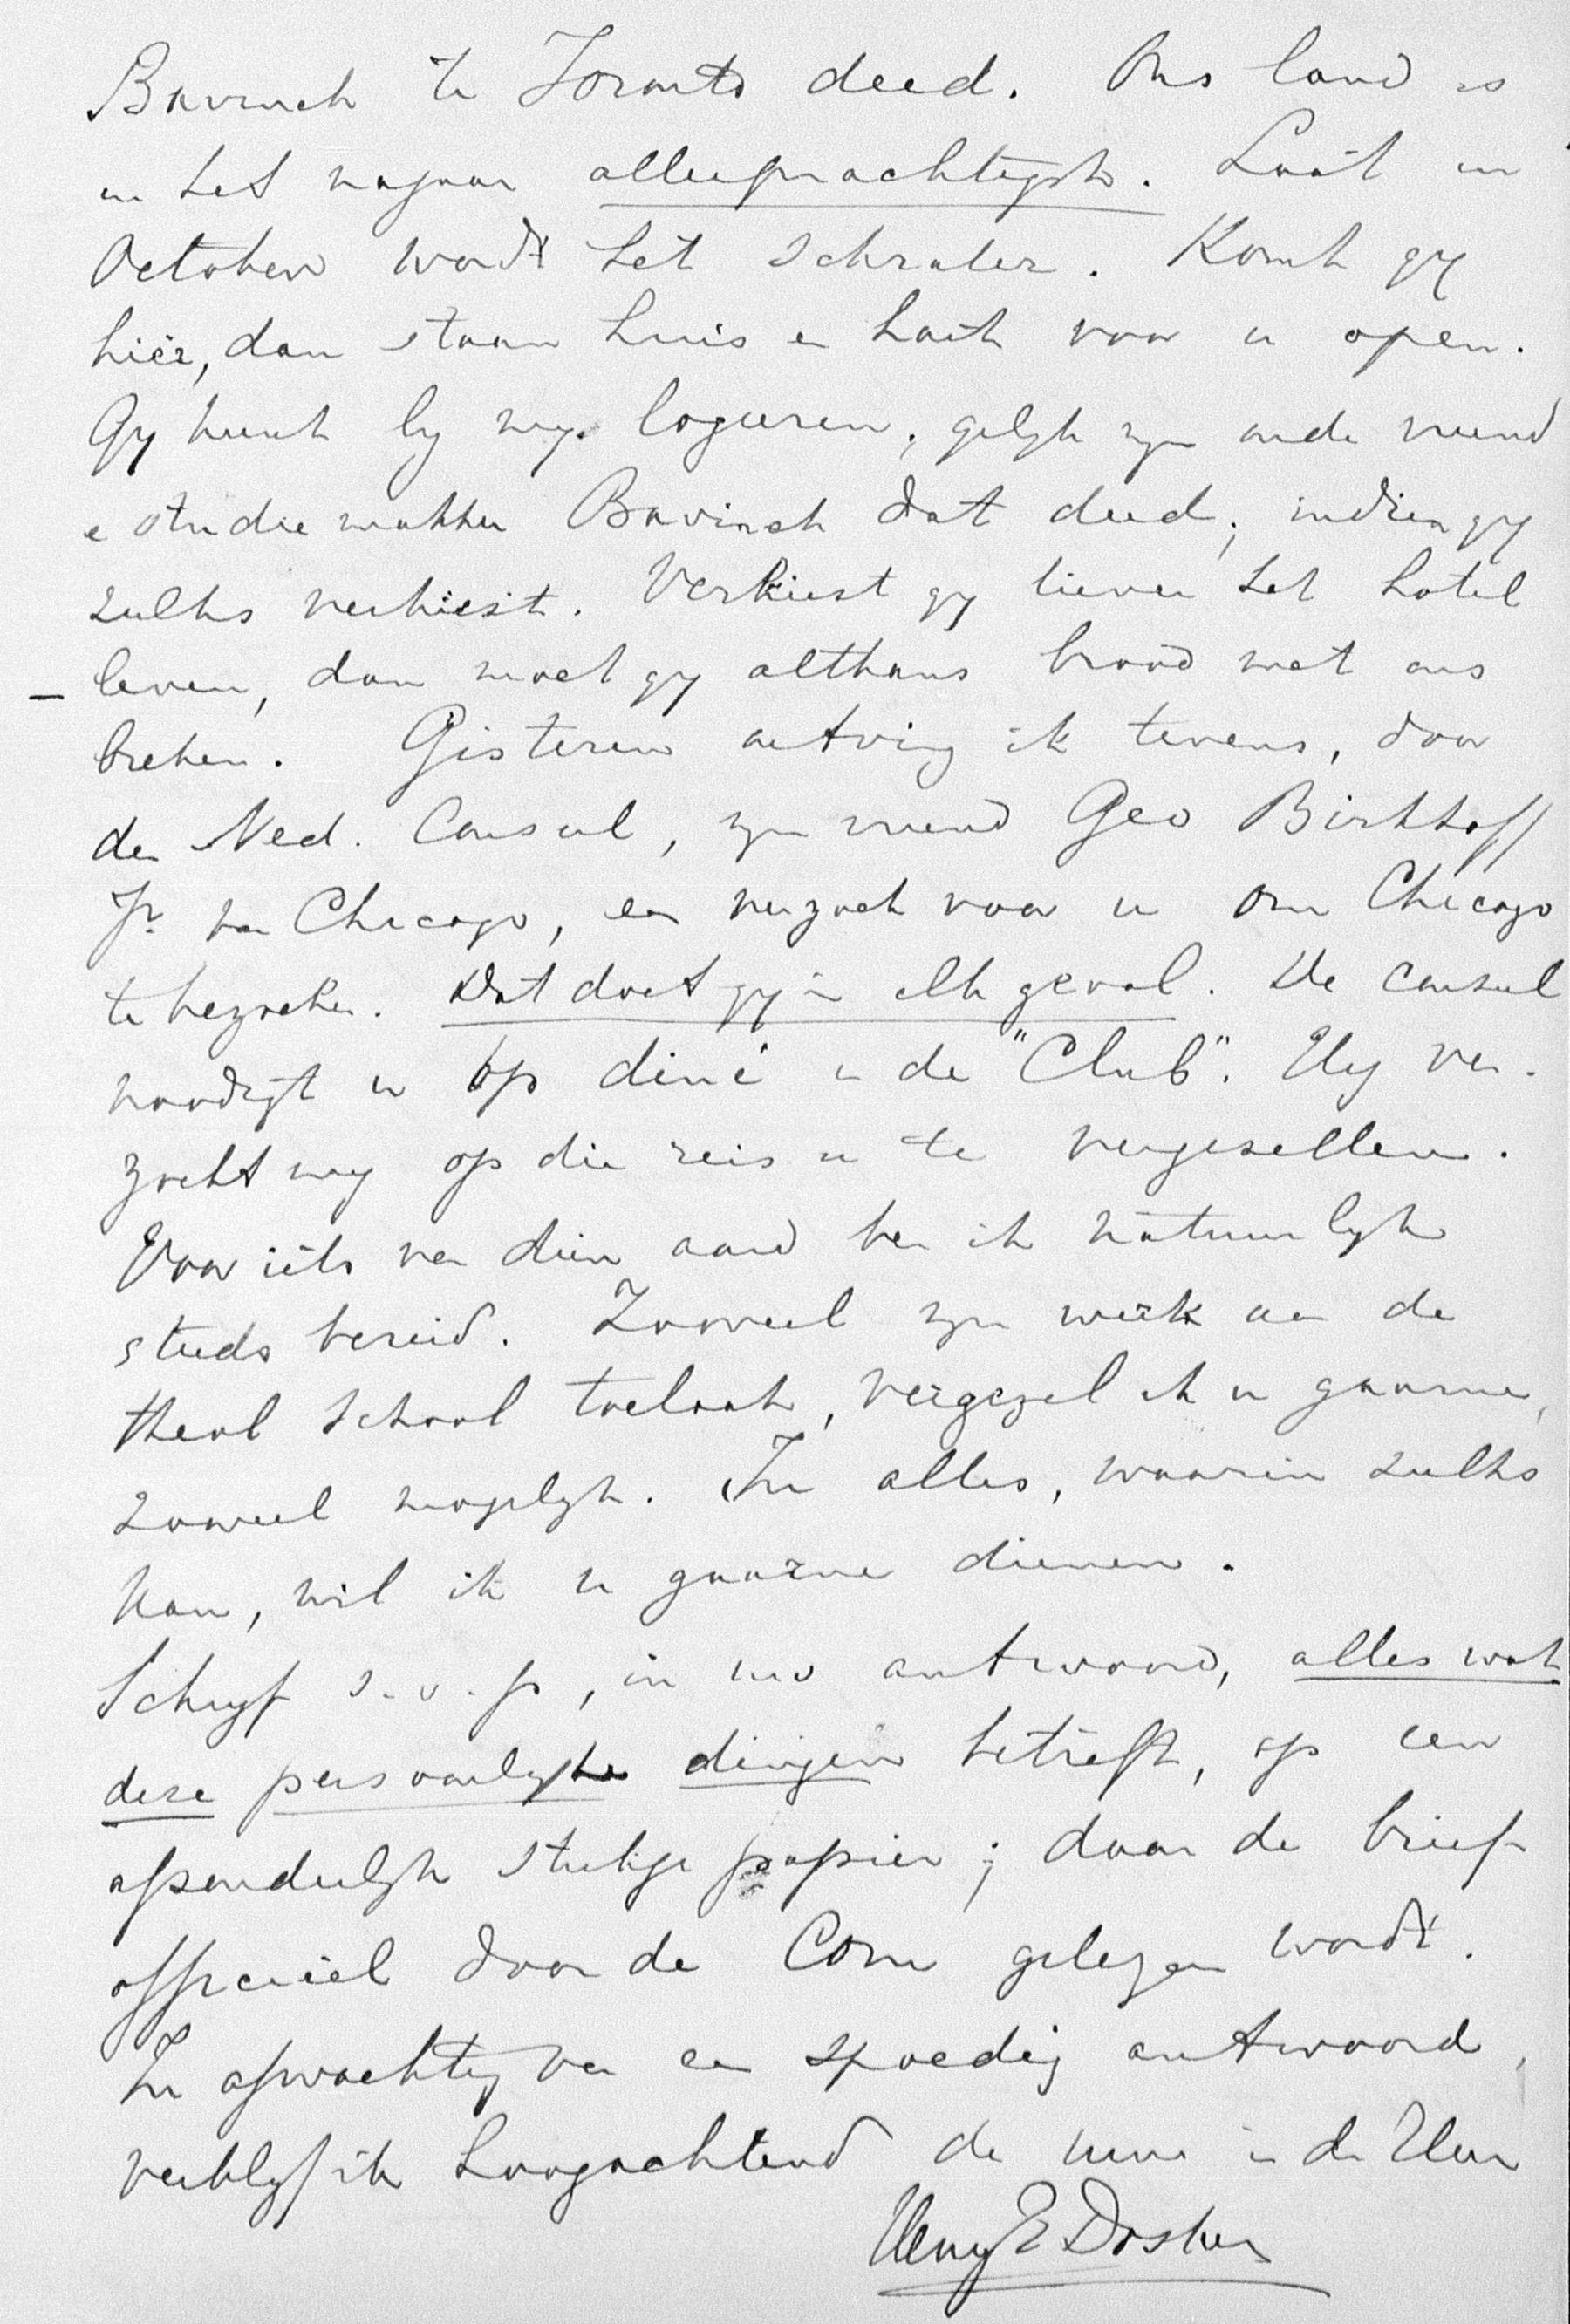 Bavinck te Toronto deed. Ons land is
in het najaar allerprachtigst. Laat in
October wordt het schraler. Komt gy
hier, dan staan huis en hart voor u open.
Gy kunt by my logeeren, gelyk myn oude vriend
en studiemakker Bavinck dat deed, indien gy
zulks verkiest. Verkiest gy liever het hotel
leven, dan moet gy althans brood met ons
breken. Gisteren ontving ik tevens, door
den Ned. Consul, myn vriend Geo Birkhoff
Jr. van Chicago, een verzoek voor u om Chicago
te bezoeken. Dat doet gy in elk geval. De consul
noodigt u op diné in de "Club". Hy ver-
zocht my op die reis u te vergesellen.
Voor iets van dien aard ben ik natuurlyk
steeds bereid. Zooveel myn werk aan de
Theol School toelaat, vergezel ik u gaarne,
zooveel mogelyk. In alles, waarin zulks
kan, wil ik u gaarne dienen.
Schryf s.v.p, in uw antwoord, alles wat
deze persoonlyke dingen betreft, op een
afzonderlyk stukje papier; daar de brief
officieel door de Com gelezen wordt.
In afwachting van een spoedig antwoord,
verblyf ik hoogachtend de uwe in den Heer
Henry E Dosker